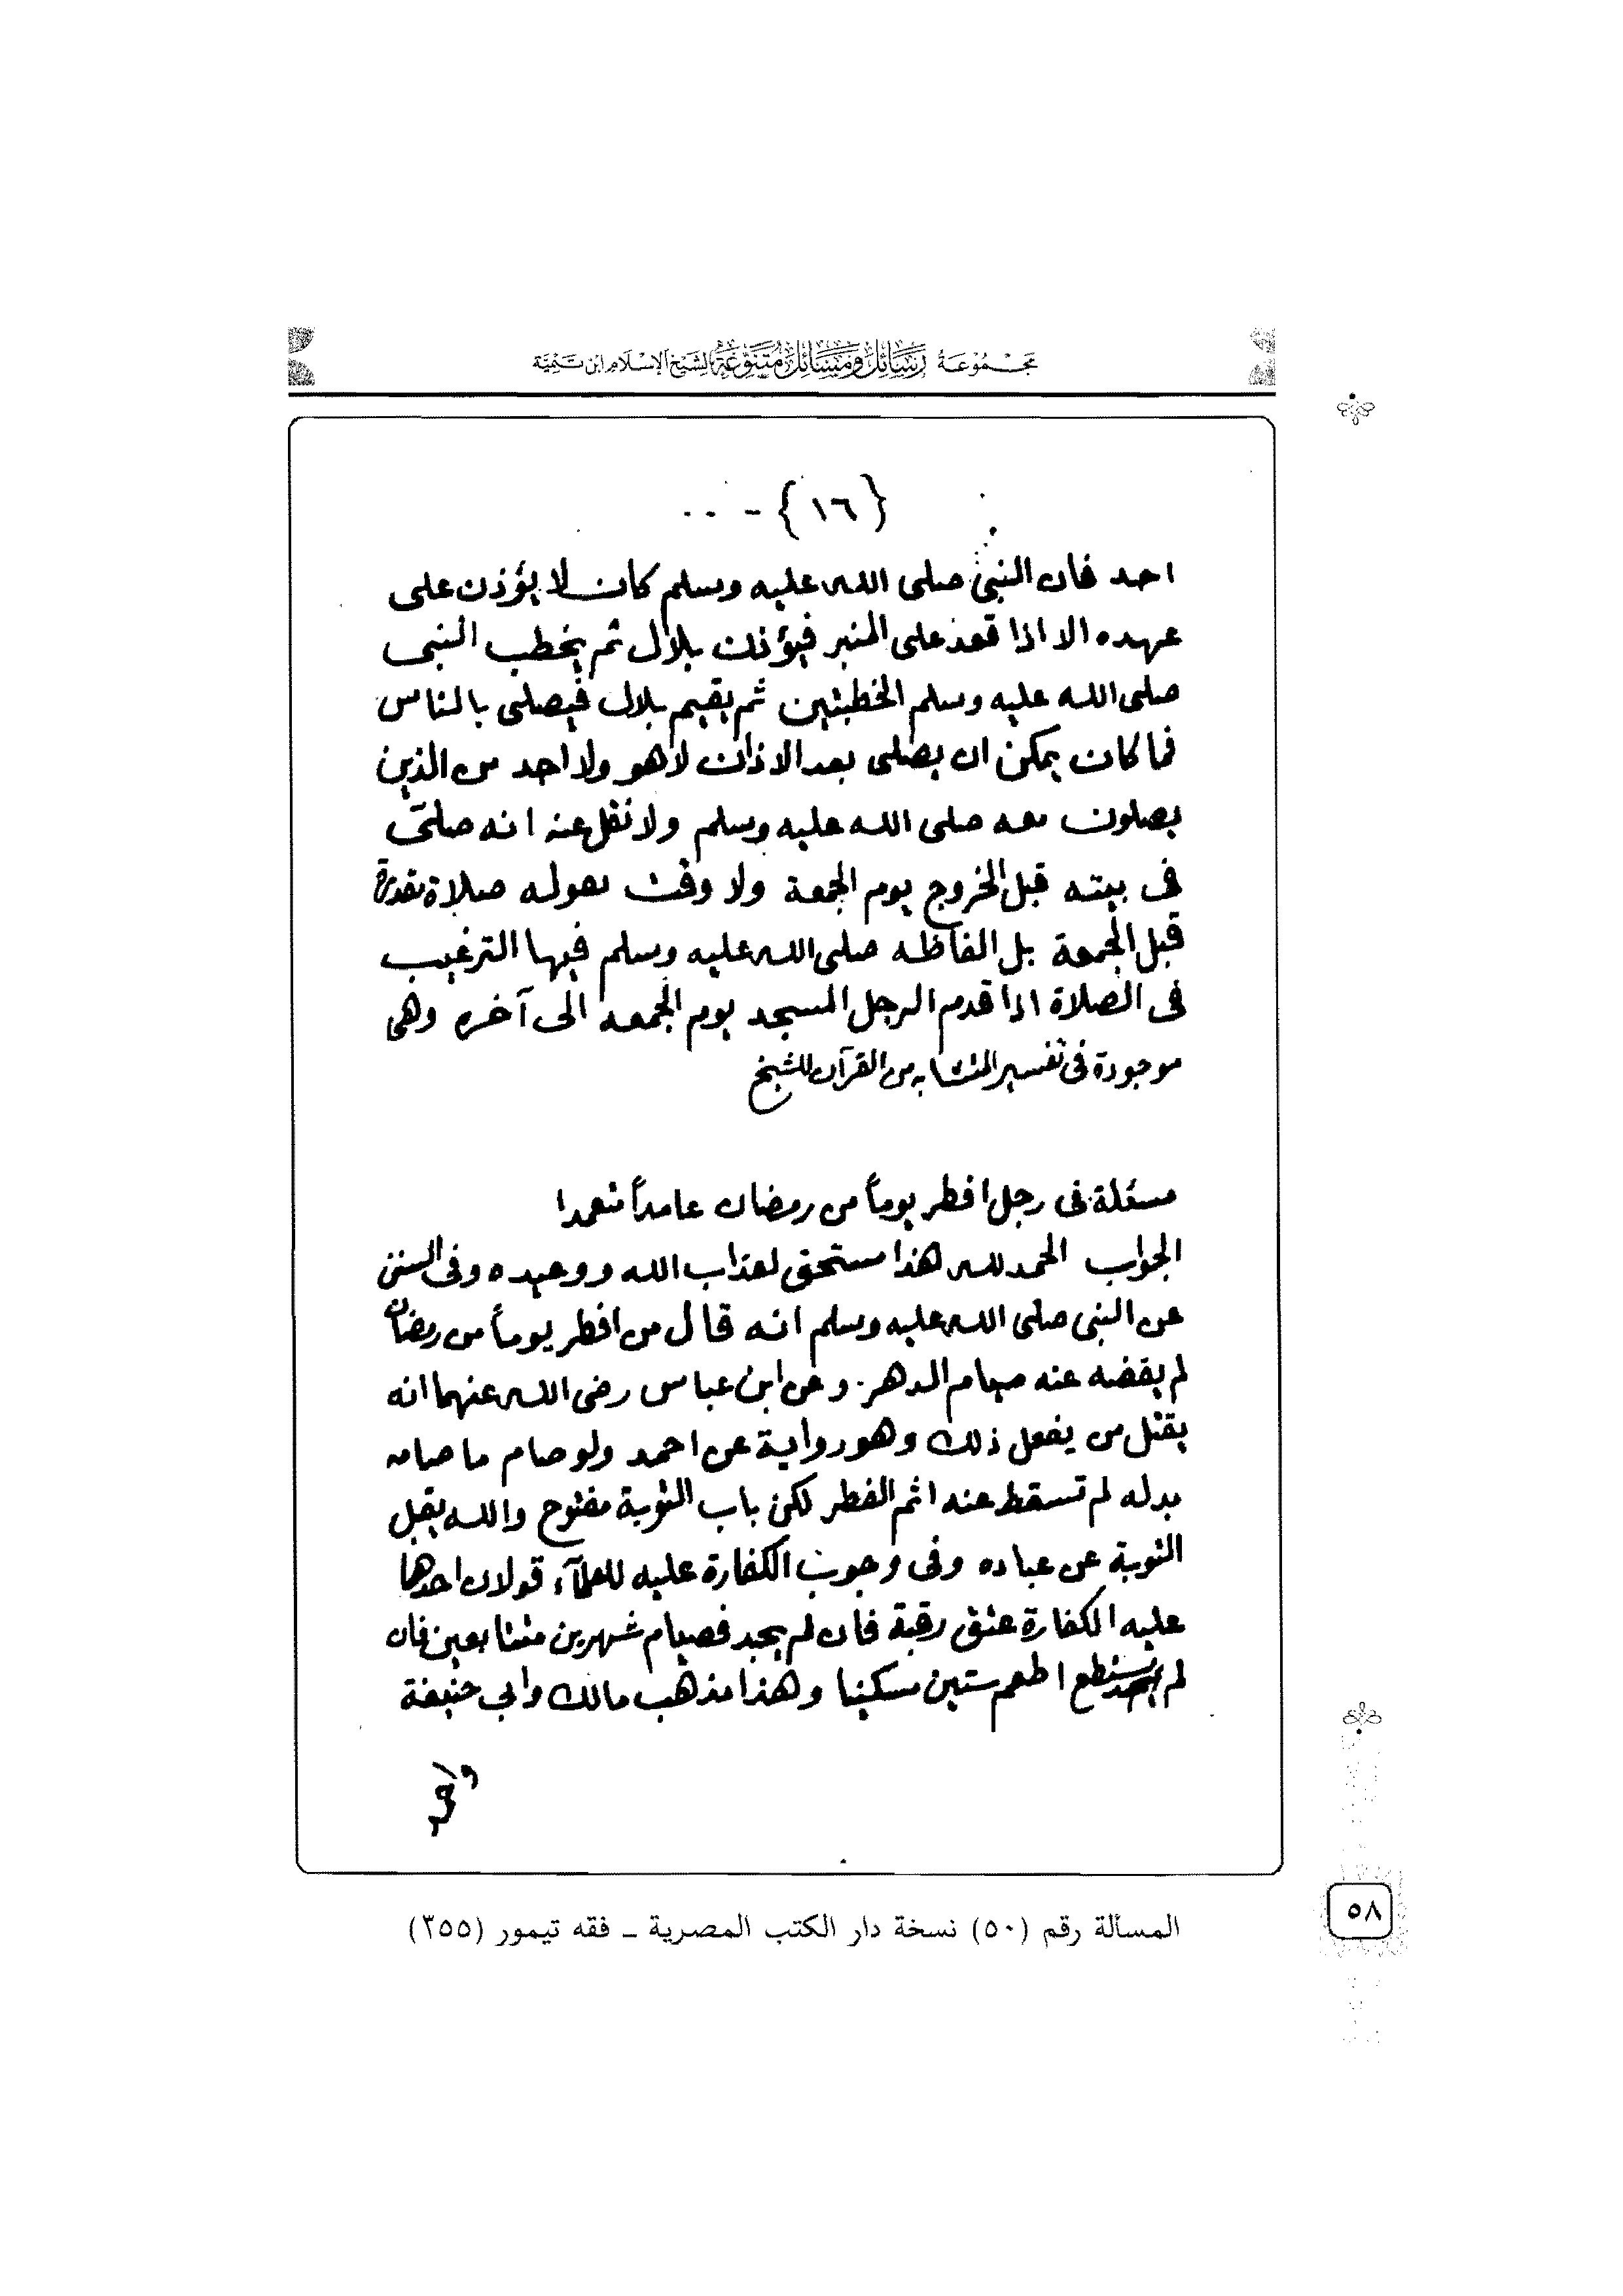 مجموعة رسائل ومسائل متنوعة لشيخ الإسلام ابن تيمية
{١٦} - ..
احد فان النبي صلى الله عليه وسلم كان لا يؤذن على
عهده الا اذا قعد على المنبر فيؤذن بلال ثم يخطب النبى
صلى الله عليه وسلم الخطبتين ثم يقيم بلال فيصلى بالناس
فما كان يمكن ان يصلى بعد الاذان لا هو ولا احد من الذين
يصلون معه صلى الله عليه وسلم ولا نقل عنه انه صلى
فى بيته قبل الخروج يوم الجمعة ولا وقت بقوله صلاة مقدرة
قبل الجمعة بل الفاظه صلى الله عليه وسلم فيها الترغيب
فى الصلاة اذا قدم الرجل المسجد يوم الجمعه الى آخره وهى
موجودة فى تفسير المتشابه من القرآن للشيخ
مسئلة فى رجل افطر يوماً من رمضان عامداً متعمدا
الجواب الحمد لله هذا مستحق لعذاب الله ووعيده وفى السنن
عن النبى صلى الله عليه وسلم انه قال من افطر يوماً من رمضان
لم يقضه عنه صيام الدهر. وعن ابن عباس رضى الله عنهما انه
يقتل من يفعل ذلك وهو رواية عن احمد ولو صام ما صامه
بدله لم تسقط عنه اثم الفطر لكن باب التوبة مفتوح والله يقبل
التوبة عن عباده وفى وجوب الكفارة عليه للعلمآء قولان احدها
عليه الكفارة عتق رقبة فان لم يجد فصيام شهرين متتابعين فان
لم يستطع اطعم ستين مسكينا وهذا مذهب مالك وابي حنيفة
٥٨
المسألة رقم (٥٠) نسخة دار الكتب المصرية ـ فقه تيمور (٣٥٥)